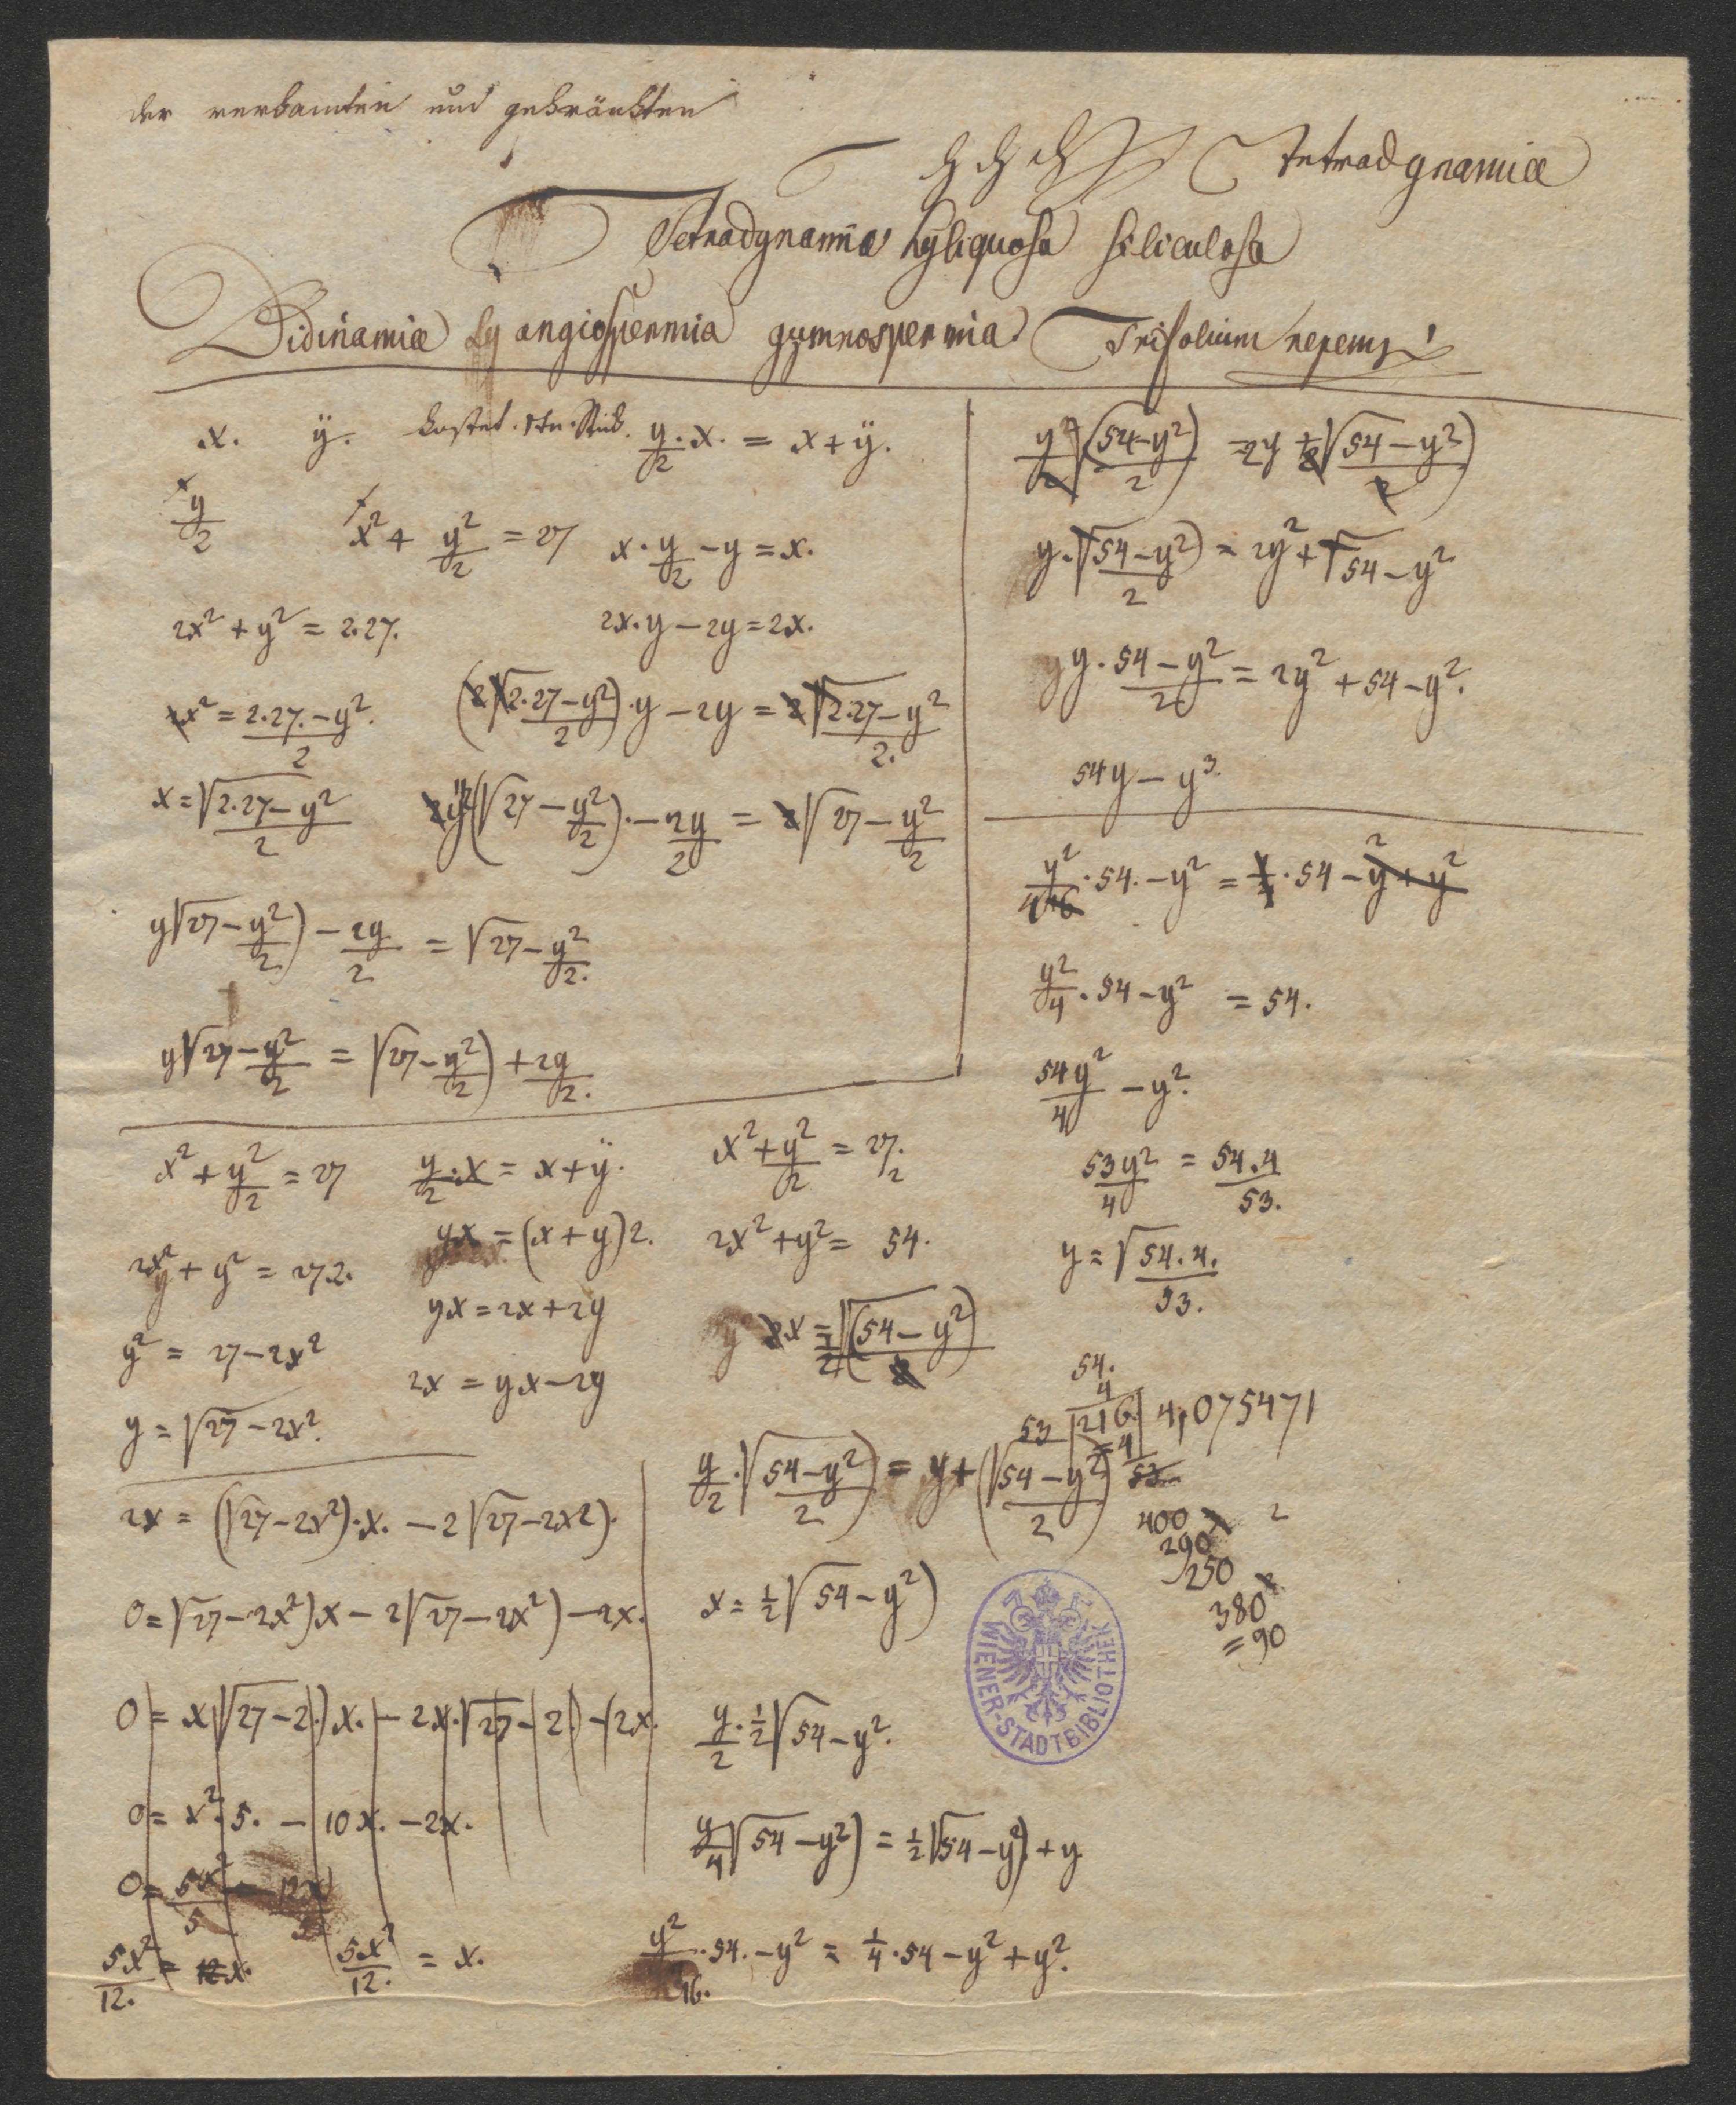 der verbamten und gekränkten
Tetradgnamiæ
Tetradgnamiæ syliquosa siliculosa
Didinamiæ angiospermia gymnospermia Trifolium repens
x. ÿ. kostet. 1tn. Stük. y/2·x. = x+ÿ.
y/2 x² + y²/2 = 27 x·y/2 - y = x.
2x² + y² = 2.27. 2x·y - 2y = 2x.
2x² = 2·27.-y²/2 (2√2·27-y²/2)·y - 2y = 2√2·27-y²/2.
x = √2·27-y²/2 2y(√27 - y²/2)·- 2y/2 = 2√27 - y²/2
y√27 - y²/2) - 2y/2 = √27 - y²/2.
y√27 - y²/2 = √27 - y²/2) + 2y/2.
y²/2√(54-y²/2) = 2y + 2√54-y²/2)
y·√54-y²/2) = 2y² + √54-y²
y·54-y²/2 = 2y² + 54 - y².
54y - y³.
y²/4·54.-y² = ¼·54 - y² + y²
y²/4·54-y² = 54.
54y²/4 - y².
53y²/4 = 54.4/53.
y = √54.4./53.
x² + y²/2 = 27 y/2·x = x+ÿ. x² + y²/2 = 27./2
2x² + y² = 27.2. yx = (x+y)2. 2x² + y² = 54.
y² = 27-2x² yx = 2x+2y
2x = ½√(54-y²)
y = √27-2x². 2x = yx-2y
54.
4
53 |216| 4,075471
=4
53
400 2
290
250
380
=90
y/2·√54-y²/2) = y + (√54-y²/2)
2x = (√27-2x²)·x. - 2√27-2x2).
x = ½√54-y²)
0 = √27-2x²)x - 2√27-2x²) - 2x.
0 = x√27-2.)x. - 2x.√27-2.) - 2x.
y/2·½√54-y².
0 = x²·5. - 10x. - 2x.
y/4√54-y²) = ½√54-y²) + y
0 = 5x²/5 - 12x
5x²/12. = 12x. 5x²/12. = x.
y²/16.·54.-y² = ¼·54-y²+y².
WIENER-STADTBIBLIOTHEK